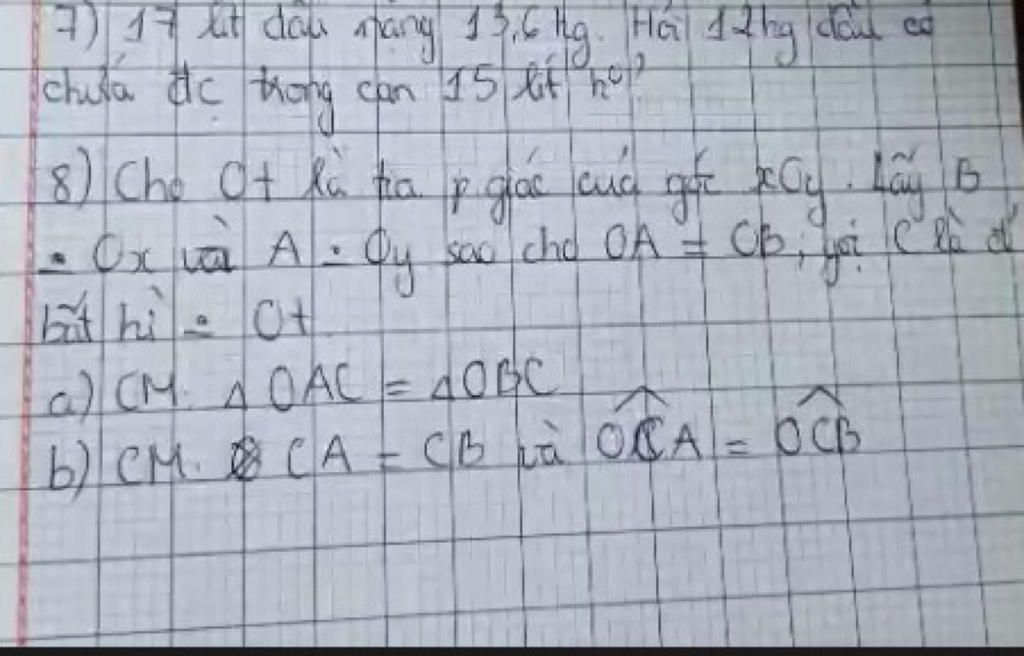 7) 17 lít dầu nặng 13,6 kg. Hỏi 12kg dầu có
chứa đc trong can 15 lít ko?
8) Cho Ot là tia p.giác của góc xOy. Lấy B
∈ Ox và A ∈ Oy sao cho OA = OB, gọi C là đ'
bất kì ∈ Ot
a) CM. △OAC = △OBC
b) CM. CA = CB và \widehat{OCA} = \widehat{OCB}